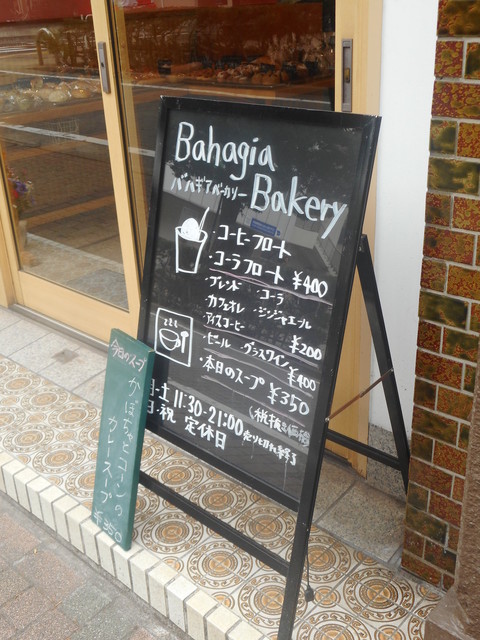 Bahagia
バハギアベーカリー
Bakery
・コーヒーフロート
・コーラフロート ¥400
ブレンド ・コーラ
カフェオレ ・ジンジャエール
アイスコーヒー ¥200
・ビール ・グラスワイン ¥400
・本日のスープ ¥350
(税抜き価格
・土 11:30-21:00 売り切れ終了
日・祝 定休日
今日のスープ
かぼちゃとコーンの
カレースープ
¥350